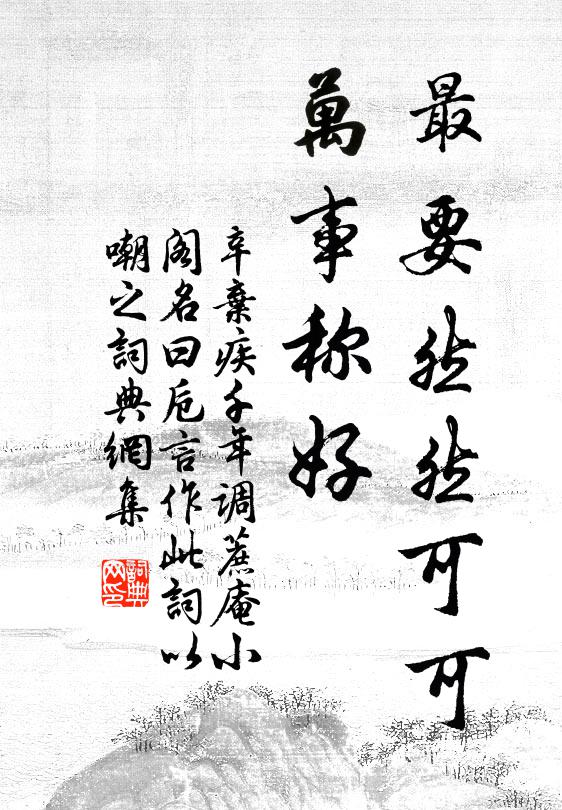 最要然然可可
萬事称好
辛棄疾千年调蔗庵小
阁名曰卮言作此詞以
嘲之詞典網集
詞典
网印